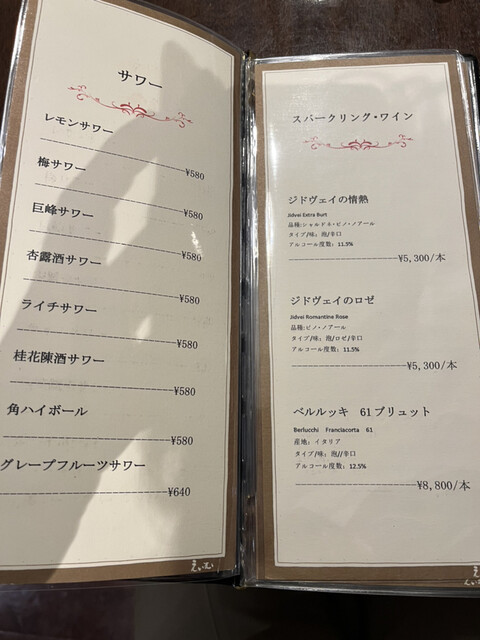 サワー
レモンサワー
¥580
梅サワー
¥580
巨峰サワー
¥580
杏露酒サワー
¥580
ライチサワー
¥580
桂花陳酒サワー
¥580
角ハイボール
¥580
グレープフルーツサワー
¥640
スパークリング・ワイン
ジドヴェイの情熱
Jidvei Extra Burt
品種:シャルドネ・ピノ・ノアール
タイプ/味：泡/辛口
アルコール度数：11.5%
¥5,300/本
ジドヴェイのロゼ
Jidvai Romantine Rose
品種:ピノ・ノアール
タイプ/味：泡/ロゼ/辛口
アルコール度数：11.5%
¥5,300/本
ベルルッキ　61ブリュット
Berlucchi Franciacorta 61
産地：イタリア
タイプ/味：泡//辛口
アルコール度数：12.5%
¥8,800/本